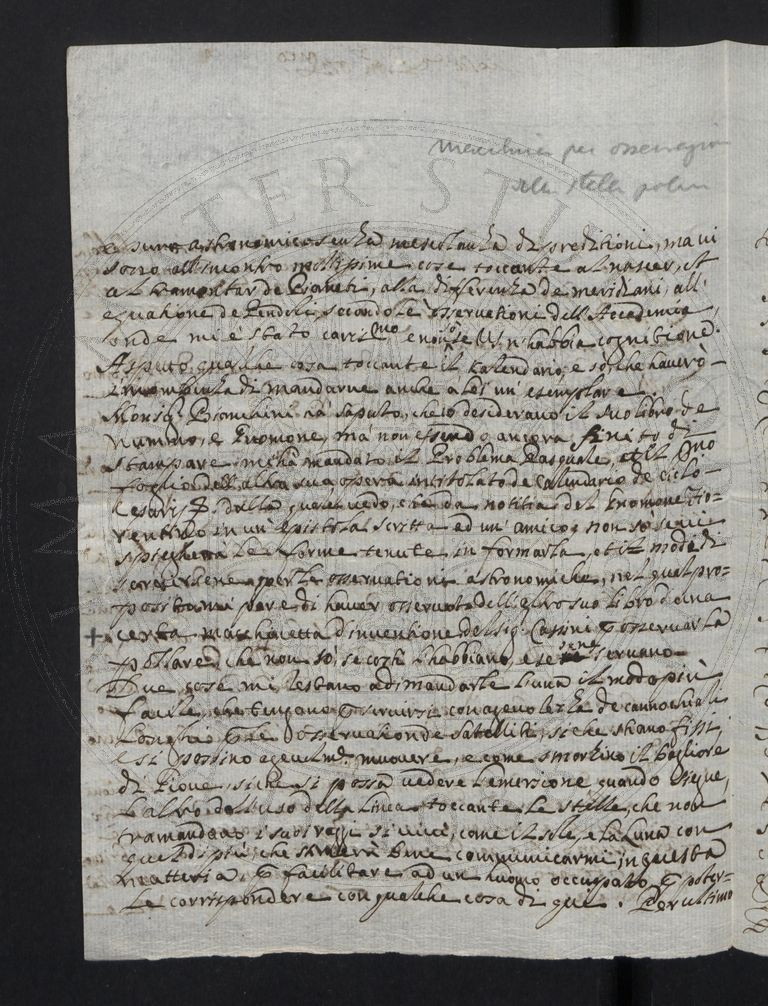 Macchina per osservazioni
della stella polare
è puro astronomico senza mescolanza di predizioni, ma vi
sono all'incontro moltissime cose toccante al nascer, et
al tramontar de Pianeti, alla differenza de meridiani, all'
equatione de Pendoli secondo le osservationi dell'Accademia
onde mi è stato cariss.mo e non so se V.S. n'habbia cognitione.
Aspetto qualche cosa toccante il Kalendario, e so che haverò
incombenza di mandarne anche a Lei un' esemplare.
Monsig. Bianchini hà saputo, che io desideravo il suo libro de
Nummo, e Gnomone, mà non essendo ancora finito di
stampare, mi hà mandato il Problema Pasquale, et il p.mo
foglio dell'altra sua opera intitolato de Calendario et Ciclo
Cesaris, dalla quale vedo, che da notitia del Gnomone
in un' epistola scritta ad un' amico, non so se ivi
le forme tenute in formarla, et il modo di
servirsene per le osservationi astronomiche, nel qual pro=
posito mi pare di haver osservato dell' suo libro d'una
+ certa macchinetta d'inventione del Sig. Cassini p osservar la
pollare, che non sò, se costì l'habbiano, e se ne servano
Due cose mi restano a dimandarle l'una il modo più
facile, che tengano p servirsi con agevolezza de cannochiali
Longhi p le osservationi de Satelliti, sì che stiano fissi,
e si possino agevolm.te muovere, e come smorzino il bagliore
di Giove, sì che si possa vedere l'emersione quando segue,
l'altro dell'uso della linea toccante le stelle, che non
tramandano i suoi raggi sì vivi, come il sole, e la Luna con
quel di più, che stimerà bene communicarmi in questa
matteria, p facilitare ad un huomo occupato p poter=
le corrispondere con qualche cosa di quì. Per ultimo